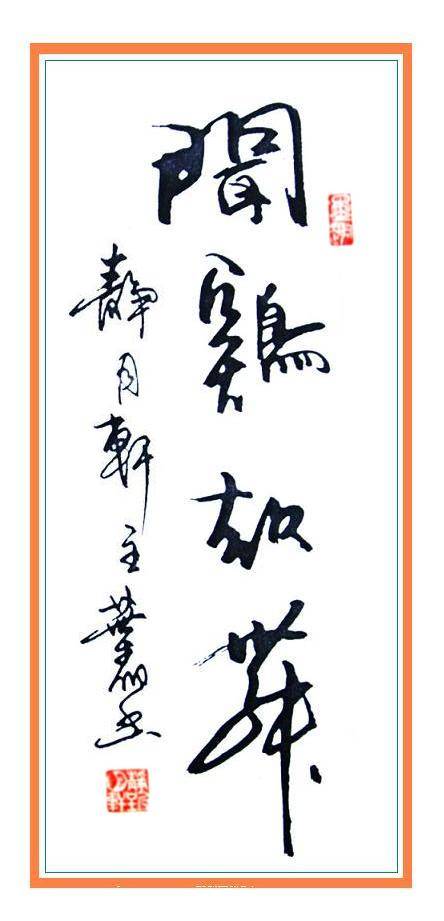 聞鷄起舞
靜月軒主書